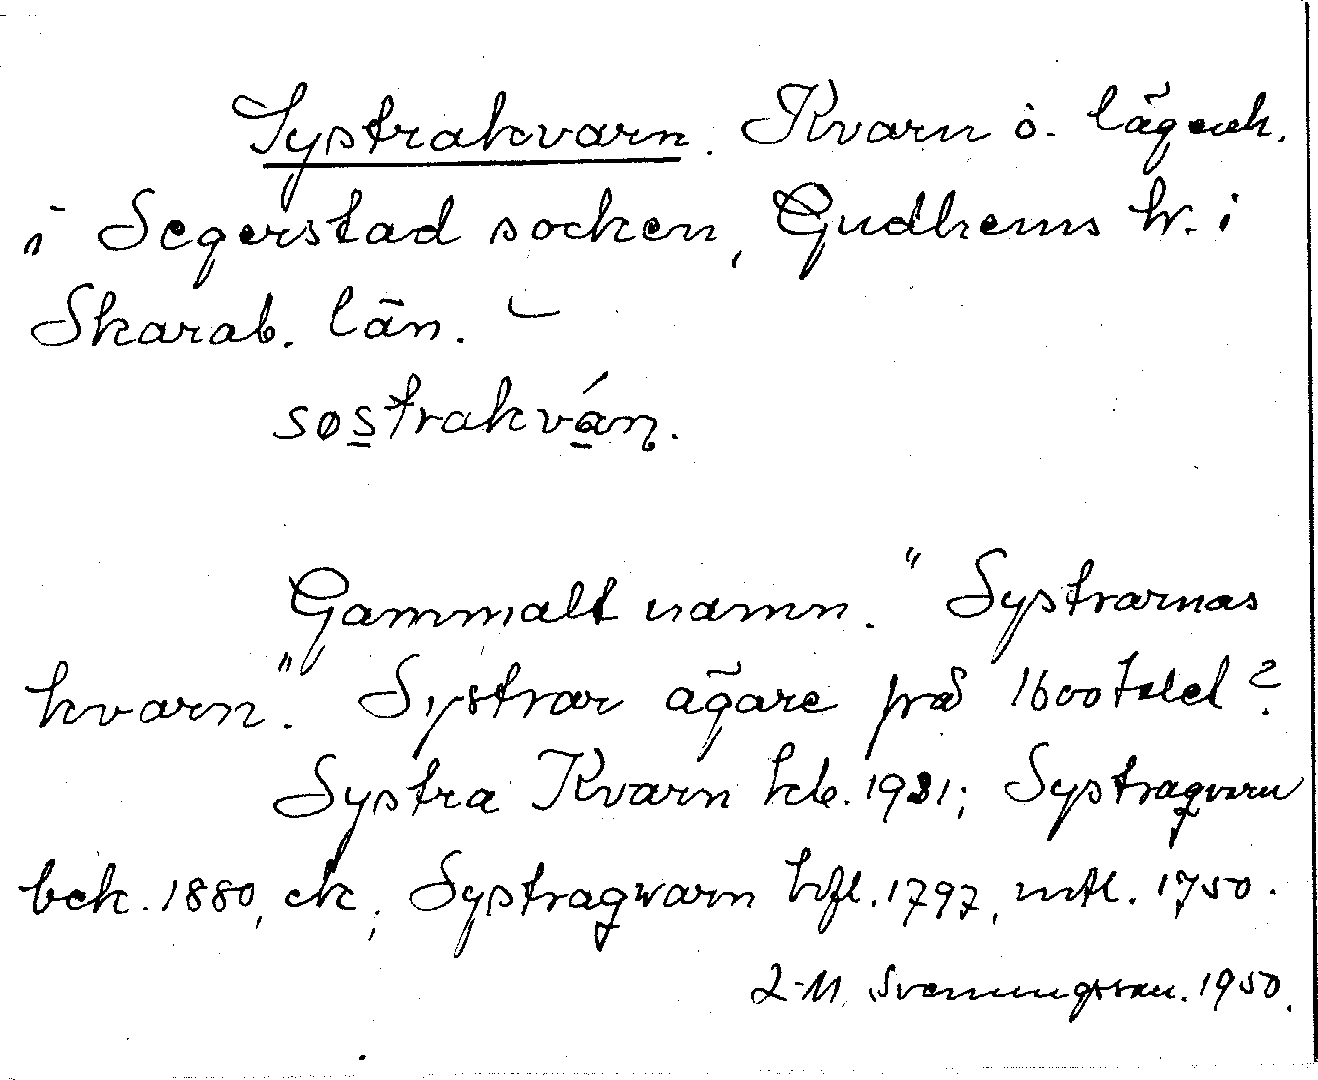 Systrakvarn. Kvarn o. lägenh.
i Segerstad socken, Gudhems hr. i
Skarab. län. –
søstrakván.
Gammalt namn. "Systrarnas
kvarn". Systrar ägare på 1600talet?
Systra Kvarn kb. 1931; Systraqvarn
bek. 1880, ek; Systragvarn hfl. 1797, mtl. 1750.
L-M. Svenningsson. 1950.